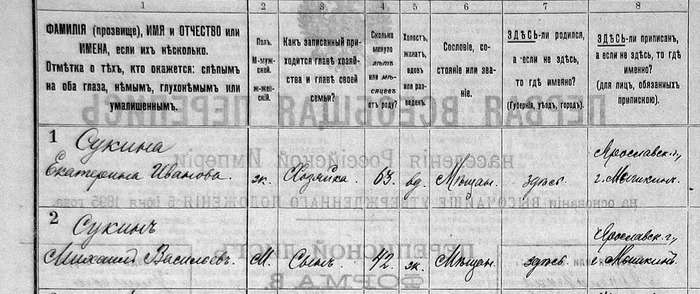 1
2
3
4
5
6
7
8
ФАМИЛІЯ (прозвище), ИМЯ и ОТЧЕСТВО или
ИМЕНА, если ихъ нѣсколько.
Отмѣтка о тѣхъ, кто окажется: слѣпымъ
на оба глаза, нѣмымъ, глухонѣмымъ или
умалишеннымъ.
Полъ.
М-мужской.
ж-женскій.
Какъ записанный при-
ходится главѣ хозяй-
ства и главѣ своей
семьи?
Сколько
минуло
лѣтъ
или мѣ-
сяцевъ
отъ роду?
Холостъ,
женатъ,
вдовъ
или раз-
веденъ.
Сословіе, со-
стояніе или зва-
ніе.
ЗДѢСЬ-ли родился,
а если не здѣсь,
то гдѣ именно?
(Губернія, уѣздъ, городъ).
ЗДѢСЬ-ли приписанъ,
а если не здѣсь, то гдѣ
именно?
(для лицъ, обязанныхъ
припискою).
ПЕРВАЯ ВСЕОБЩАЯ ПЕРЕПИСЬ
населенія Россійской Имперіи
на основаніи ВЫСОЧАЙШЕ УТВЕРЖДЕННАГО ПОЛОЖЕНІЯ 5 Іюня 1895 года
ПЕРЕПИСНОЙ ЛИСТЪ
ФОРМА В.
1 Сукина
Екатерина Иванова. ж. Хозяйка 63. вд. Мѣщан. здѣсь Ярославск. г.,
г. Мышкин.
2 Сукинъ
Михаилъ Васильевъ. М. Сынъ. 42. ж. Мѣщан. здѣсь. Ярославск. г.
г. Мышкин.